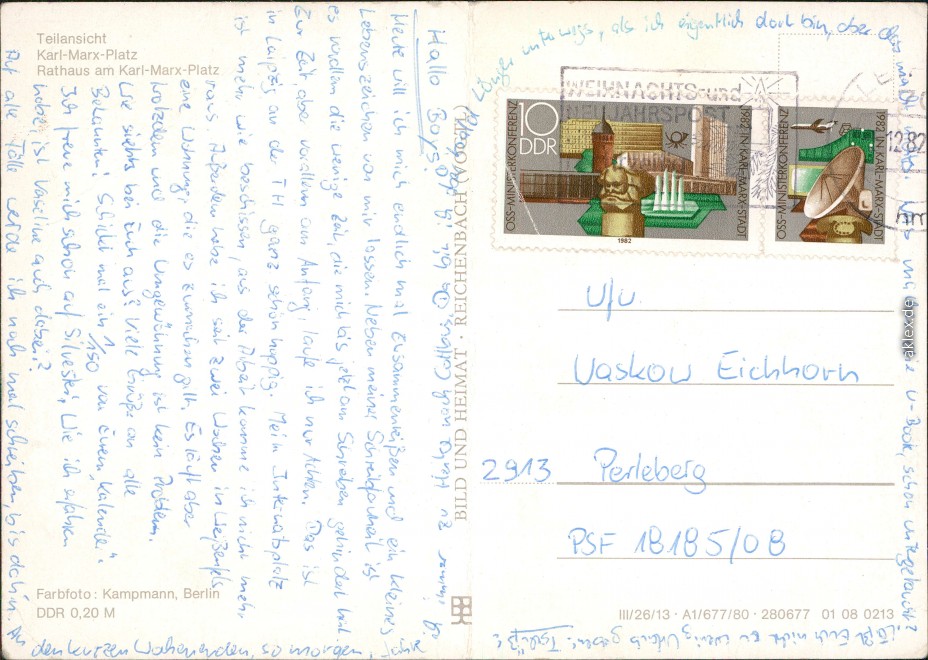 Teilansicht
Karl-Marx-Platz
Rathaus am Karl-Marx-Platz
Hallo Boys!
Heute will ich mich endlich mal zusammenreißen und ein kleines
Lebenszeichen von mir lassen. Neben meiner Schreibfaulheit ist
es vor allem die wenige Zeit, die mich bis jetzt am Schreiben gehindert hat.
Zur Zeit aber vor allem am Anfang laufe ich nur Achten. Das ist
in Leipzig an der TH ganz schön happig. Mein Internatsplatz
ist mehr wie beschissen, aus der Arbeit komme ich nicht mehr
raus. Außerdem habe ich seit zwei Wochen in Weißenfels
eine Wohnung, die es einzurichten gilt. Es läuft aber
trotzdem und die Umgewöhnung ist kein Problem.
Wie sieht's bei Euch aus? Viele Grüße an alle
Bekannten! Schickt mal ein 1/150 von Eurem "Kalender".
Ich freue mich schon auf Silvester. Wie ich erfahren
habe, ist Vaseline auch dabei?
Auf alle Fälle werde ich noch mal schreiben, bis dahin
den kurzen Wochenenden, so morgen,
Länger unterwegs, als ich eigentlich dort bin, aber das
macht nichts. Was macht die U-Book, schon untergetaucht?
Laßt Euch nicht zu wenig Urlaub geben! Tschüß
BILD UND HEIMAT · REICHENBACH (VOGTL)
WEIHNACHTS- und
NEUJAHRSPOST
10
DDR
OSS-MINISTERKONFERENZ
1982 IN KARL-MARX-STADT
1982
OSS-MINISTERKONFERENZ
1982 IN KARL-MARX-STADT
12.82
U/u.
Vaskow Eichhorn
2913 Perleberg
PSF 18185/08
Farbfoto: Kampmann, Berlin
DDR 0,20 M
III/26/13 · A1/677/80 · 280677 01 08 0213
aklex.de